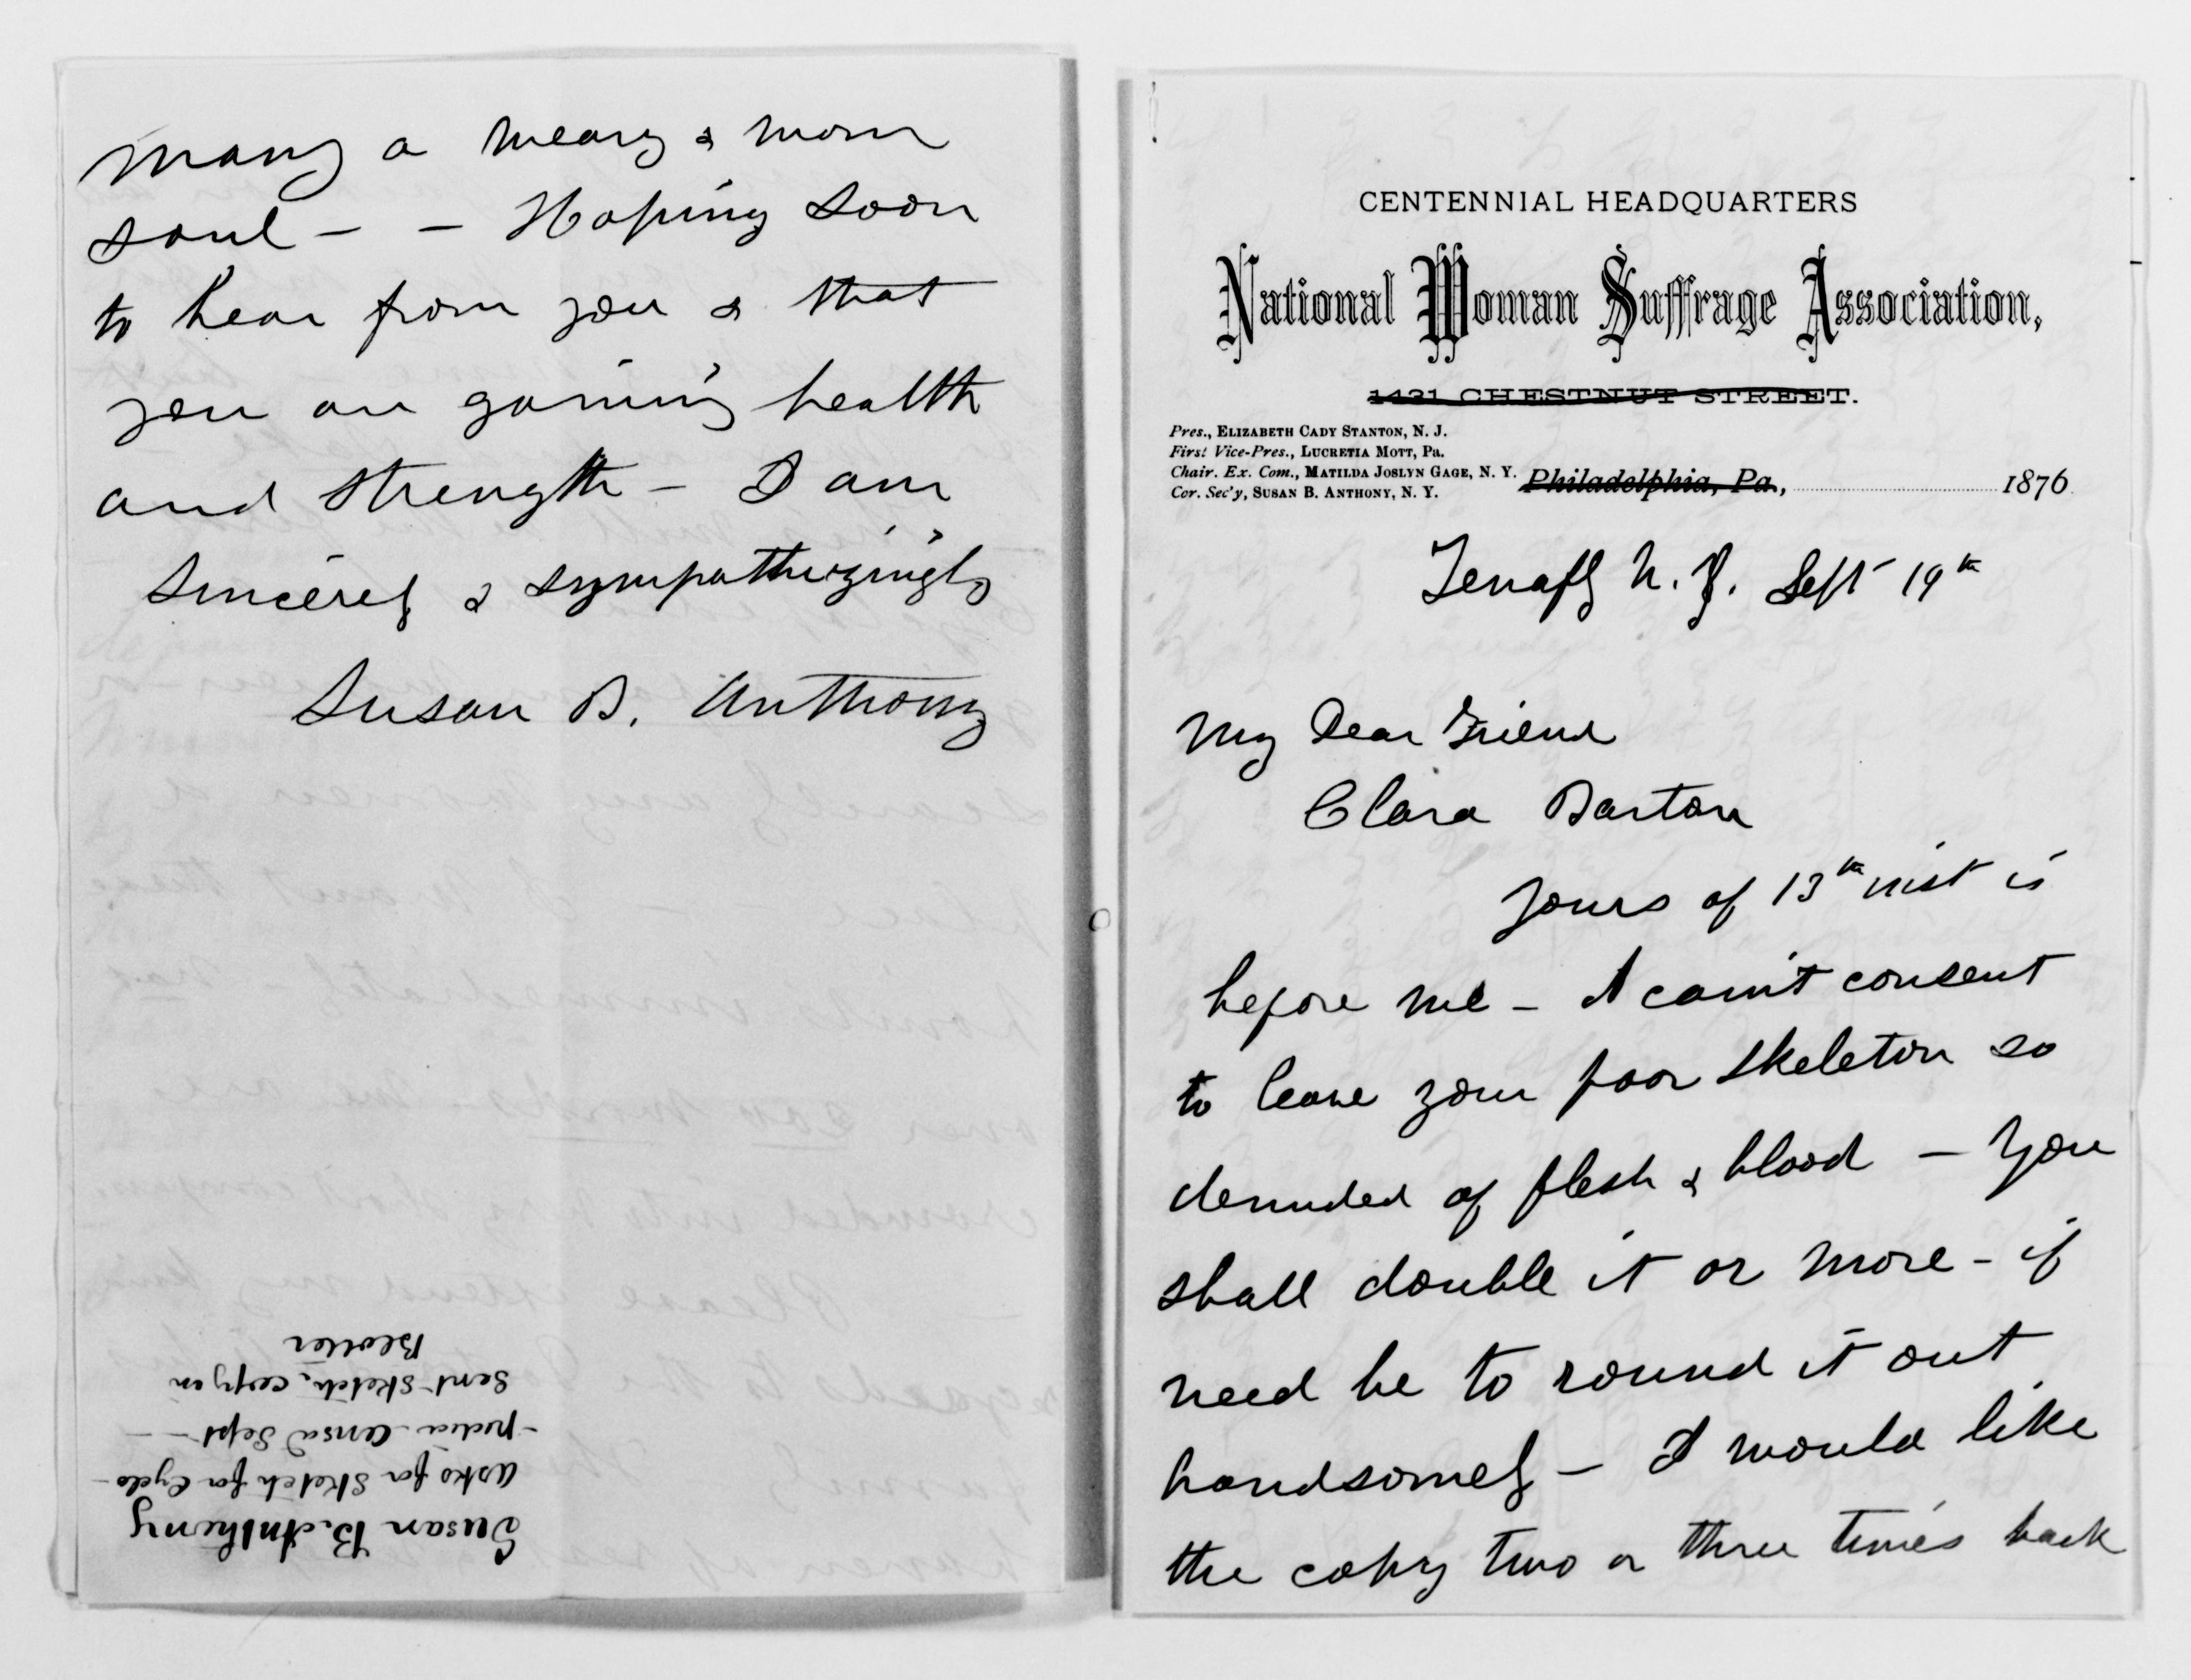 many a weary & worn
soul - - Hoping soon
to hear from you & that
you are gaining health
and strength - I am
Sincerely & sympathizingly
Susan B. Anthony
Susan B. Anthony
asks for Sketch for Cyclo-
-pedia - ansd Sept - -
Sent Sketch, copy in
CENTENNIAL HEADQUARTERS
National Woman Suffrage Association,
1431 CHESTNUT STREET.
Pres., ELIZABETH CADY STANTON, N. J.
First Vice-Pres., LUCRETIA MOTT, Pa.
Chair. Ex. Com., MATILDA JOSLYN GAGE, N. Y.
Cor. Sec'y, SUSAN B. ANTHONY, N. Y.
Philadelphia, Pa., 1876
Tenafly N. J. Sept 19th
My Dear Friend
Clara Barton
Yours of 13th inst is
before me - I can't consent
to leave your poor skeleton so
denuded of flesh & blood - You
shall double it or more - if
need be to round it out
handsomely - I would like
the copy two or three times back